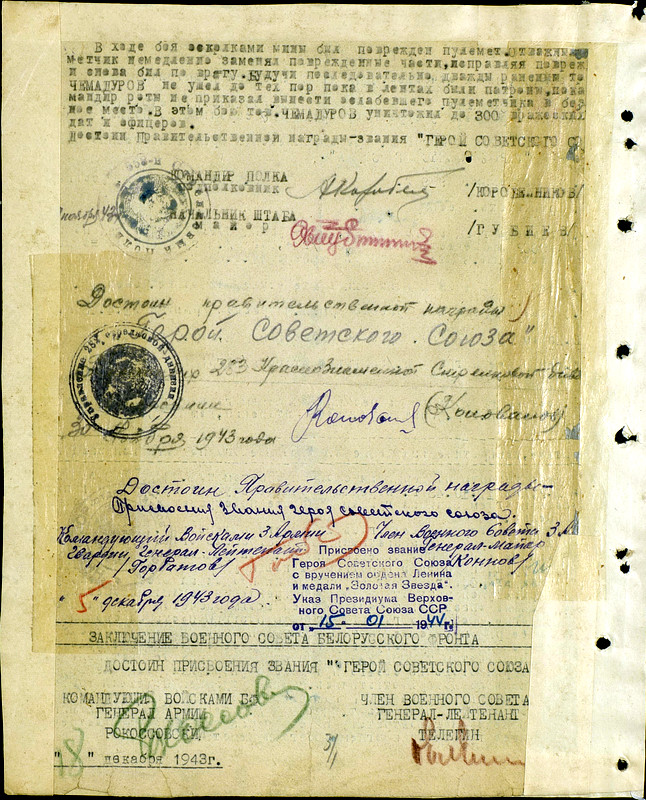 В ходе боя осколками мины был поврежден пулемет. отважны
метчик немедленно заменял поврежденные части, исправляя повреж
и снова бил по врагу. Будучи последовательно дважды раненым то
ЧЕМАДУРОВ не ушел до тех пор пока в лентах были патроны, пока
мандир роты не приказал вынести ослабевшего пулеметчика в без
ное место. В этом бою тов. ЧЕМАДУРОВ уничтожил до 300 вражеских
дат и офицеров.
Достоин Правительственной награды-звания "ГЕРОЙ СОВЕТСКОГО С
КОМАНДИР ПОЛКА
полковник
/КОРОБЕЙНИКОВ/
ноября 43
НАЧАЛЬНИК ШТАБА
майор
/ГУБИЕВ/
Достоин правительственной награды
"Герой Советского Союза"
283 Краснознаменной Стрелковой
(Коновалов)
1943 года
Достоин Правительственной награды-
присвоения звания героя советского союза.
Командующий Войсками 3 Армии
Член Военного Совета 3 А
Гвардии Генерал-Лейтенант
Генерал-Майор
/Горбатов/
Коннов/
"5" декабря 1943 года
Присвоено звание
Героя Советского Союза
с вручением ордена Ленина
и медали „Золотая Звезда".
Указ Президиума Верхов-
ного Совета Союза ССР
от „15. 01 1944 г.
ЗАКЛЮЧЕНИЕ ВОЕННОГО СОВЕТА БЕЛОРУССКОГО ФРОНТА
ДОСТОИН ПРИСВОЕНИЯ ЗВАНИЯ "ГЕРОЙ СОВЕТСКОГО СОЮЗА
КОМАНДУЮЩИЙ ВОЙСКАМИ БФ
ЧЛЕН ВОЕННОГО СОВЕТА
ГЕНЕРАЛ АРМИИ
ГЕНЕРАЛ-ЛЕЙТЕНАНТ
РОКОССОВСКИЙ
ТЕЛЕГИН
"18" декабря 1943г.